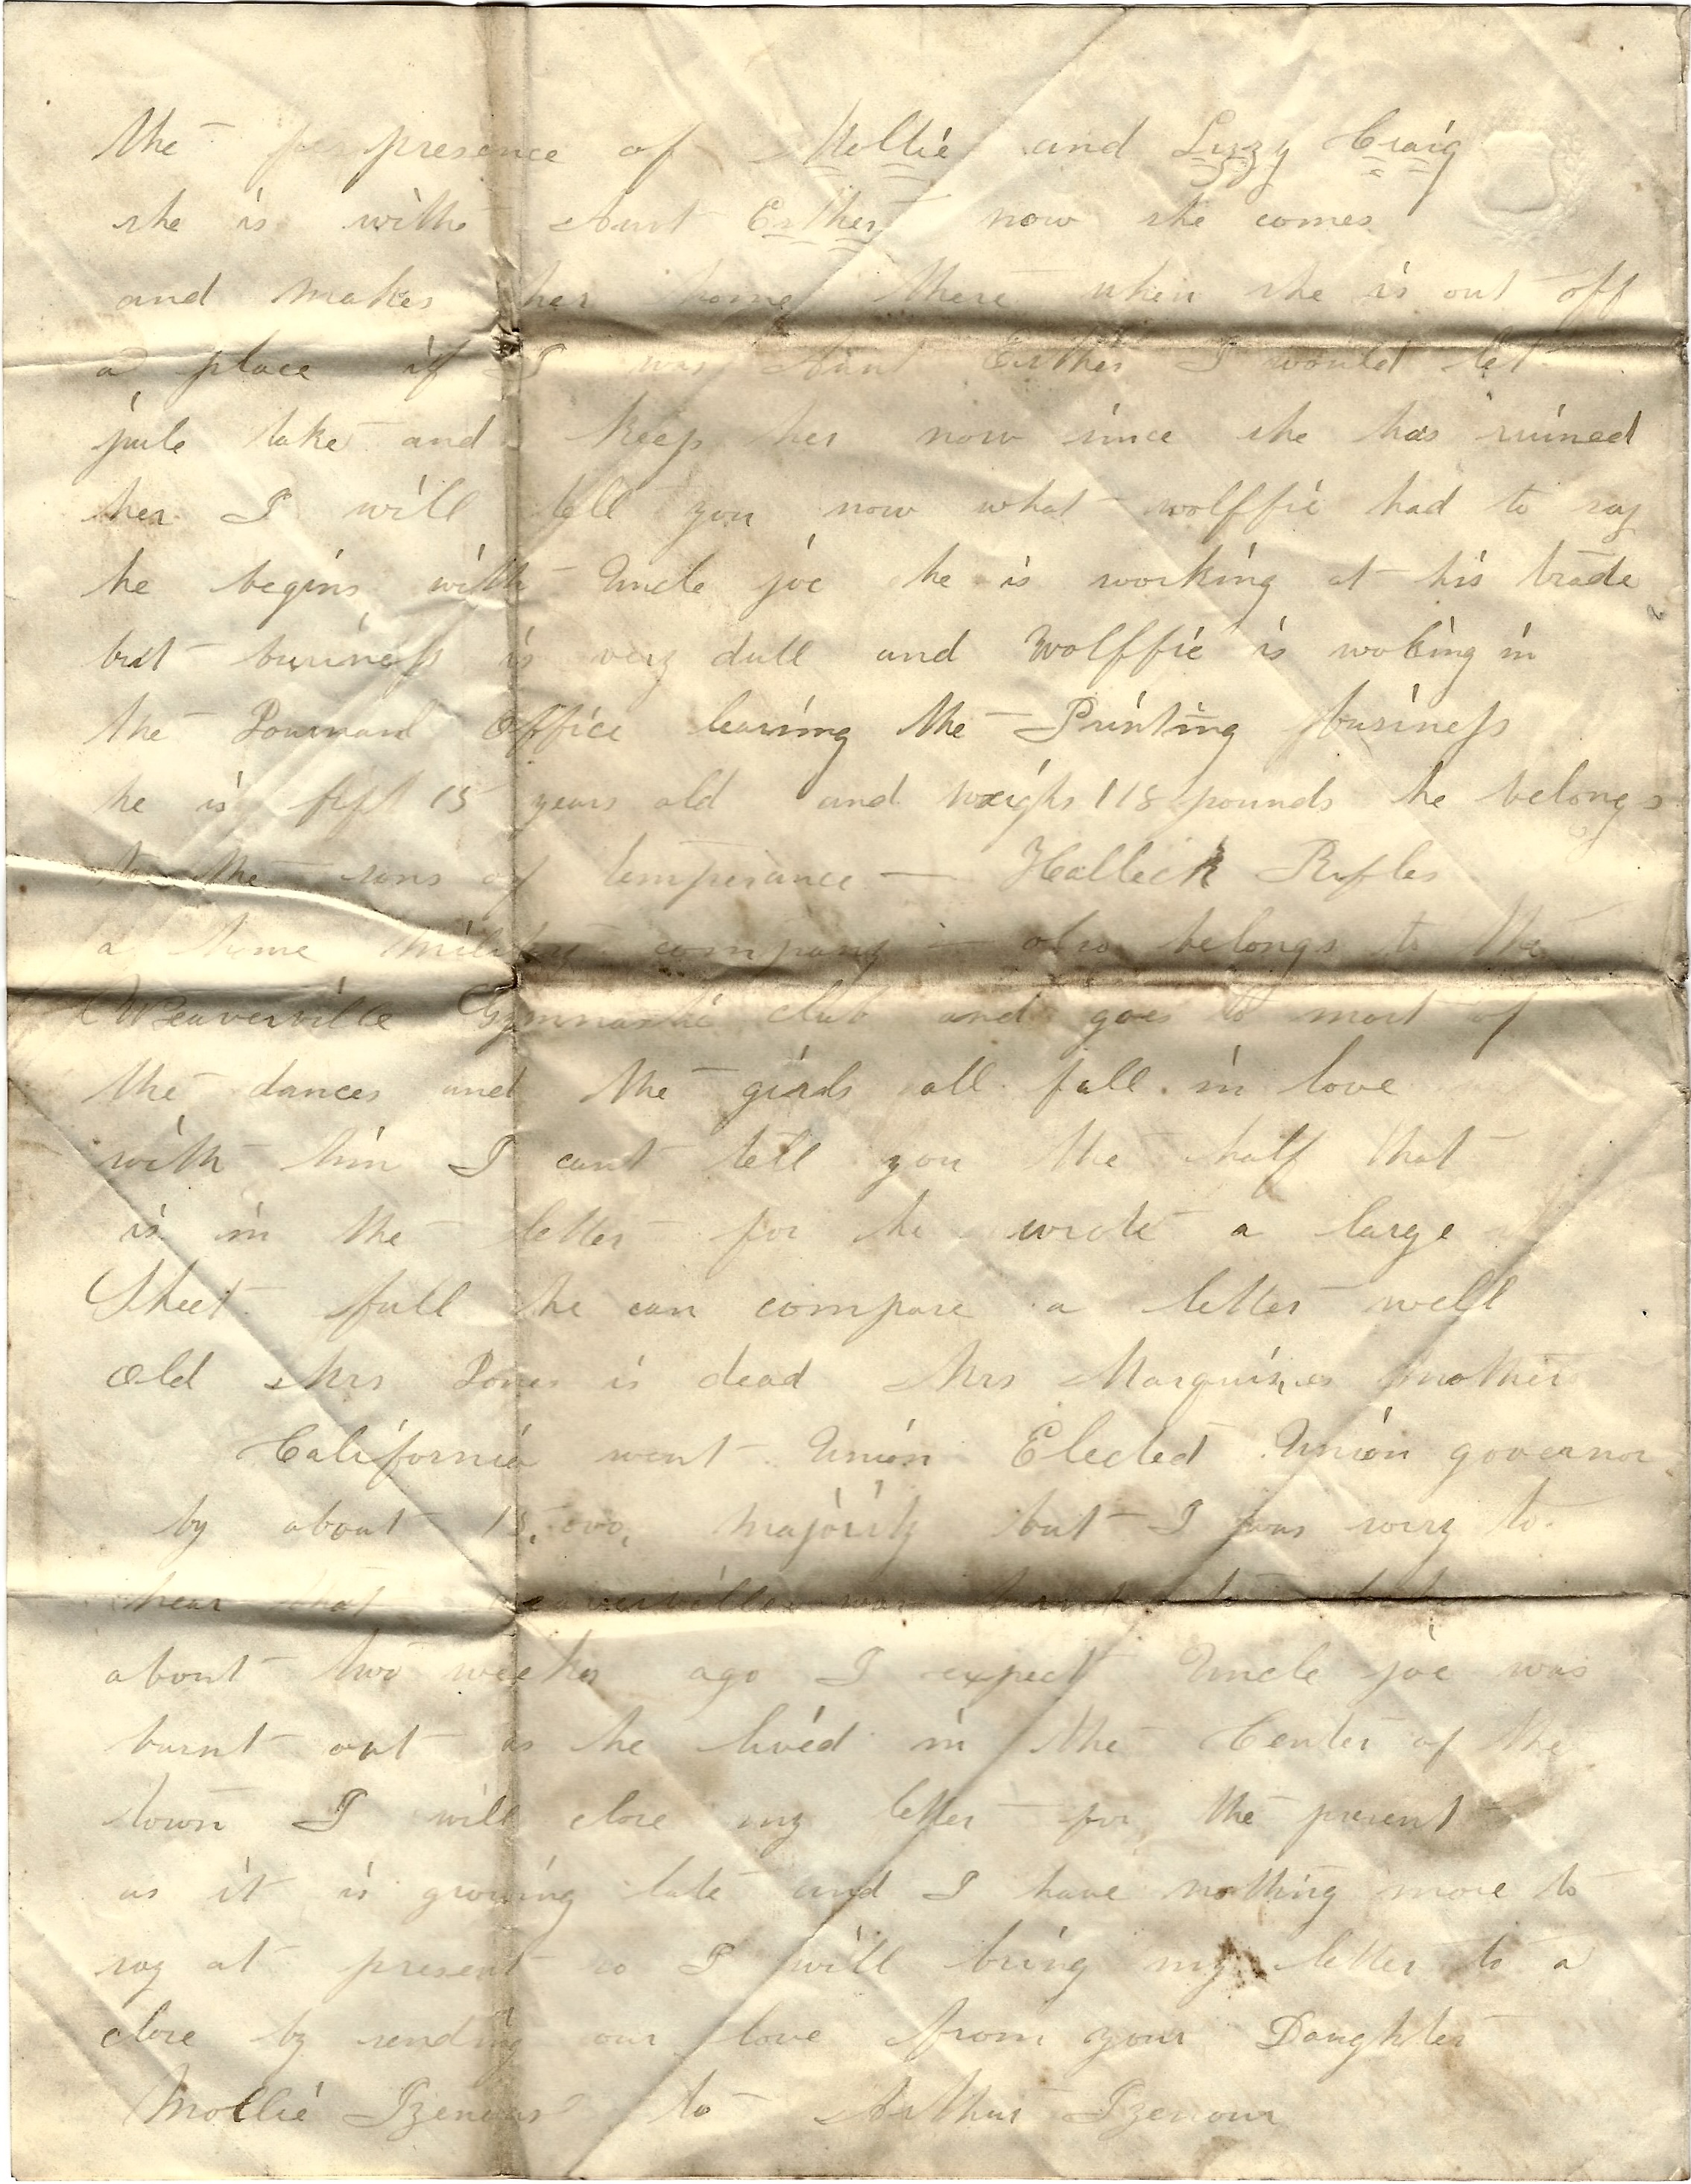 the presence of Mollie and Lizzy Craig
she is with Aunt Esther now she comes
and makes her home there when she is out off
a place if I was Aunt Esther I would let
jule take and keep her now since she has ruined
her I will tell you now what wolffie had to say
he begins with Uncle joe he is working at his trade
but business is very dull and Wolffie is woking in
the Journal Office learing the Printing business
he is 15 years old and weighs 118 pounds he belongs
to the sons of temperance — Halleck Rifles
a home company — also belongs to the
Weaverville Gymnastic club and goes to most of
the dances and the girls all fall in love
with him I cant tell you the half that
is in the letter for he wrote a large
Sheet full he can compare a letter well
Old Mrs Jones is dead Mrs mother
California went Union Elected Union governor
by about majority but I was sorry to
hear that weaverville was burnt
about two weeks ago I expect Uncle joe was
burnt out as he lived in the Center of the
town I will close my letter for the present
as it is growing late and I have nothing more to
say at present so I will bring my letter to a
close by sending our love from your Daughter
Mollie Izenour to Arthur Izenour